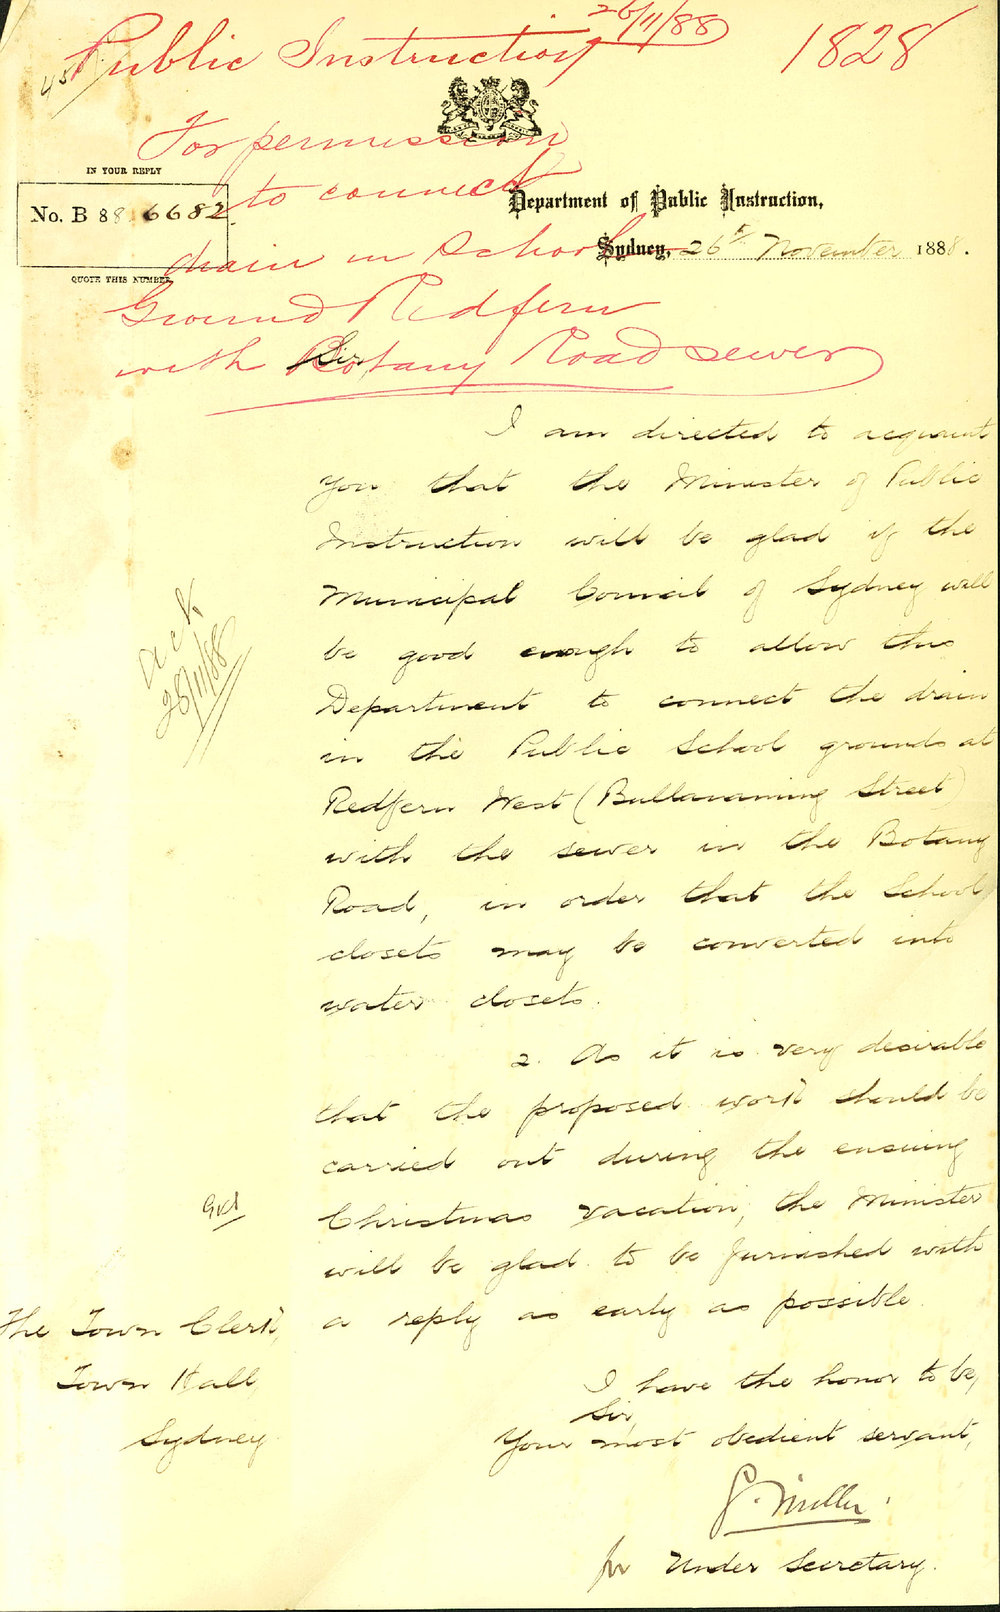 Public Instruction 26/11/88 1828
For permission
to connect
drain in School
Ground Redfern
with Botany Road sewer
IN YOUR REPLY
No. B 88.6682
QUOTE THIS NUMBER
Department of Public Instruction,
Sydney, 26th November 1888.
Sir,
I am directed to acquaint
you that the Minister of Public
Instruction will be glad if the
Municipal Council of Sydney will
be good enough to allow this
Department to connect the drain
in the Public School grounds at
Redfern West (Bullanaming Street)
with the sewer in the Botany
Road, in order that the School
closets may be converted into
water closets.
2. As it is very desirable
that the proposed work should be
carried out during the ensuing
Christmas vacation, the Minister
will be glad to be furnished with
a reply as early as possible.
I have the honor to be,
Sir,
Your most obedient servant,
G. Miller.
for Under Secretary.
The Town Clerk,
Town Hall,
Sydney
28/11/88